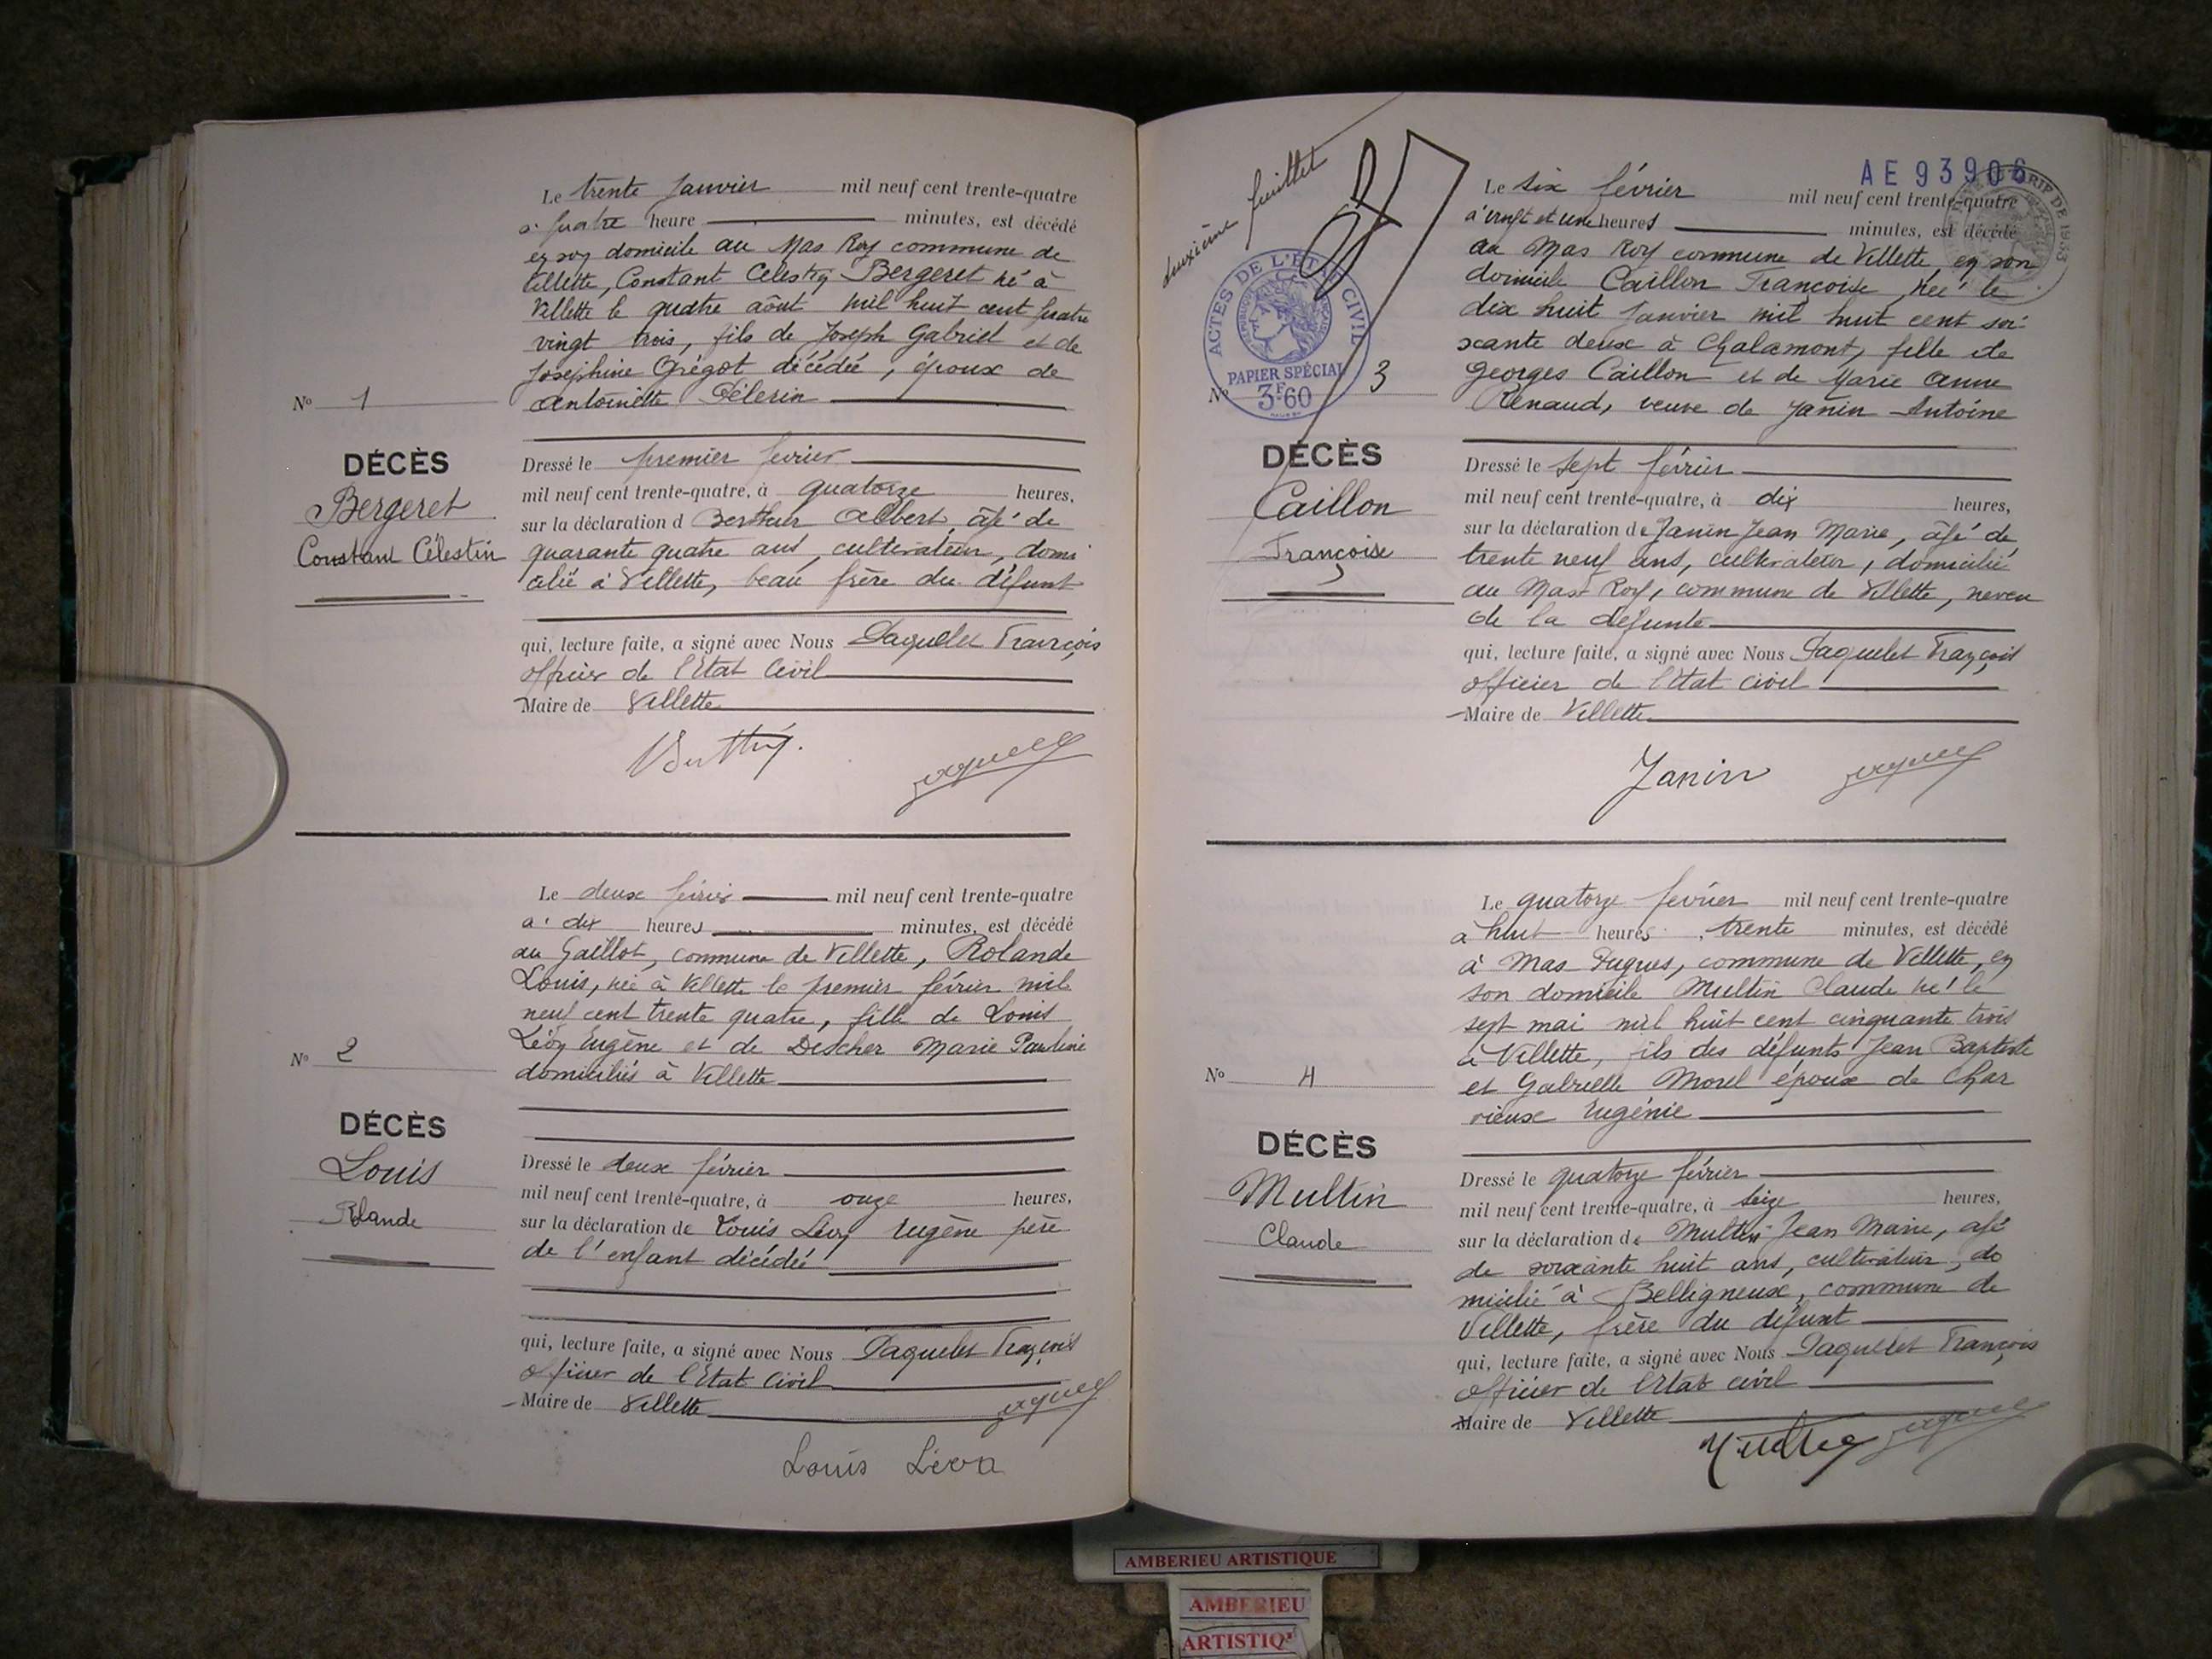 Le trente Janvier mil neuf cent trente-quatre
à quatre heure minutes, est décédé
en son domicile au Mas Roy commune de
Villette, Constant Celestin Bergeret né à
Villette le quatre aôut mil huit cent quatre
vingt trois, fils de Joseph Gabriel et de
Joséphine Grégot décédée, époux de
Antoinette Pélerin
N° 1
DÉCÈS
Bergeret
Constant Célestin
Dressé le premier fevrier
mil neuf cent trente-quatre, à quatorze heures,
sur la déclaration d Berthier Albert, âgé de
quarante quatre ans, cultivateur, domi
cilié à Villette, beau frère du défunt
qui, lecture faite, a signé avec Nous Paquelet François
officier de l'Etat Civil
Maire de Villette
Le deux février mil neuf cent trente-quatre
à dix heures minutes, est décédé
au Gaillot, commune de Villette, Rolande
Louis, née à Villette le premier février mil
neuf cent trente quatre, fille de Louis
Léon Eugène et de Descher Marie Pauline
domiciliés à Villette
N° 2
DÉCÈS
Louis
Rolande
Dressé le deux février
mil neuf cent trente-quatre, à onze heures,
sur la déclaration de Louis Léon Eugène père
de l'enfant décédé
qui, lecture faite, a signé avec Nous Paquelet François
officier de l'Etat Civil
Maire de Villette
Louis Léon
deuxième feuillet
AE 93906
ACTES DE L'ÉTAT CIVIL
PAPIER SPÉCIAL
3F.60
Le six février mil neuf cent trente-quatre
à vingt et une heures minutes, est décédé
au Mas Roy commune de Villette, en son
domicile Caillon Françoise, née le
dix huit Janvier mil huit cent soi
xante deux à Chalamont, fille de
Georges Caillon et de Marie Anne
Renaud, veuve de Janin Antoine
N° 3
DÉCÈS
Caillon
Françoise
Dressé le sept février
mil neuf cent trente-quatre, à dix heures,
sur la déclaration de Janin Jean Marie, âgé de
trente neuf ans, cultivateur, domicilié
au Mas Roy, commune de Villette, neveu
de la défunte
qui, lecture faite, a signé avec Nous Paquelet François
officier de l'Etat civil
Maire de Villette
Janin
Le quatorze février mil neuf cent trente-quatre
à huit heures trente minutes, est décédé
à Mas Dugues, commune de Villette, en
son domicile Multin Claude né le
sept mai mil huit cent cinquante trois
à Villette, fils des défunts Jean Baptiste
et Gabrielle Morel époux de Char
vieuse Eugénie
N° 4
DÉCÈS
Multin
Claude
Dressé le quatorze février
mil neuf cent trente-quatre, à seize heures,
sur la déclaration de Multin Jean Marie, agé
de soixante huit ans, cultivateur, do
micilié à Belligneux, commune de
Villette, frère du défunt
qui, lecture faite, a signé avec Nous Paquelet François
officier de l'Etat civil
Maire de Villette
AMBERIEU ARTISTIQUE
AMBERIEU
ARTISTIQ